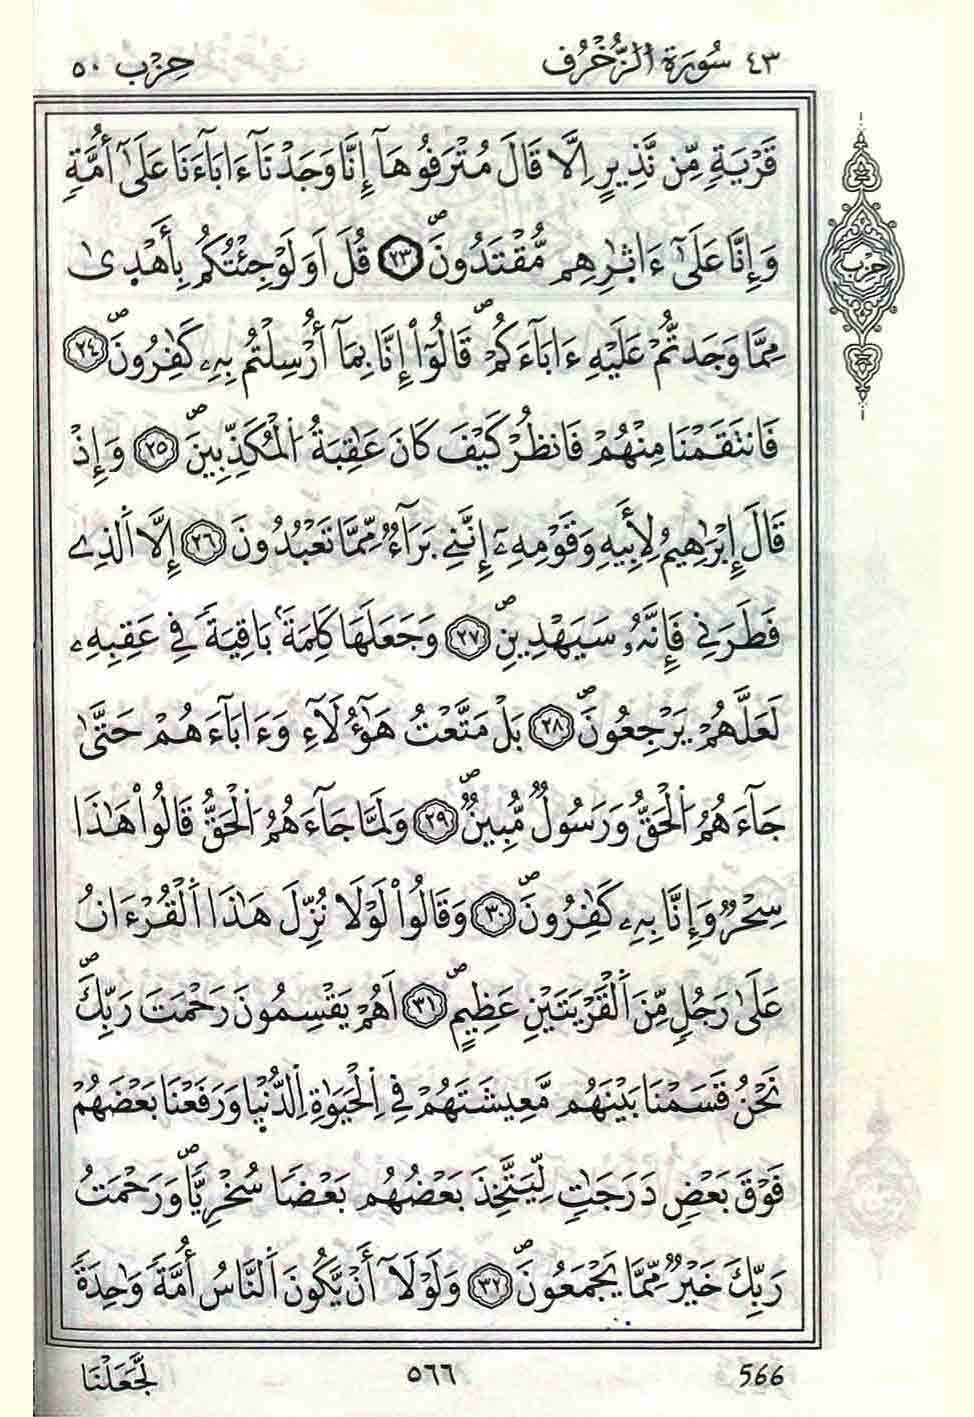 ٤٣ سُورَةُ اَ۬لزُّخْرُفِ حِزْب ٥٠
قَرْيَةٖ مِّن نَّذِيرٍ اِلَّا قَالَ مُتْرَفُوهَآ إِنَّا وَجَدْنَآ ءَابَآءَنَا عَلَىٰٓ أُمَّةٖ
حِزْب
وَإِنَّا عَلَىٰٓ ءَاثٰ۪رِهِم مُّقْتَدُونَۖ ٢٣ قُلَ اَوَلَوْ جِئْتُكُم بِأَهْد۪ىٰ
مِمَّا وَجَدتُّمْ عَلَيْهِ ءَابَآءَكُمْۖ قَالُوٓاْ إِنَّا بِمَآ أُرْسِلْتُم بِهِۦ كَٰفِرُونَۖ ٢٤
فَانتَقَمْنَا مِنْهُمْ فَانظُرْ كَيْفَ كَانَ عَٰقِبَةُ اُ۬لْمُكَذِّبِينَۖ ٢٥ وَإِذْ
قَالَ إِبْرَٰهِيمُ لِأَبِيهِ وَقَوْمِهِۦٓ إِنَّنِے بَرَآءٞ مِّمَّا تَعْبُدُونَ ٢٦ إِلَّا اَ۬لذِے
فَطَرَنِے فَإِنَّهُۥ سَيَهْدِينِۖ ٢٧ وَجَعَلَهَا كَلِمَةَۢ بَاقِيَةٗ فِے عَقِبِهِۦ
لَعَلَّهُمْ يَرْجِعُونَۖ ٢٨ بَلْ مَتَّعْتُ هَٰٓؤُلَآءِ وَءَابَآءَهُمْ حَتَّىٰ
جَآءَهُمُ اُ۬لْحَقُّ وَرَسُولٞ مُّبِينٞۖ ٢٩ وَلَمَّا جَآءَهُمُ اُ۬لْحَقُّ قَالُواْ هَٰذَا
سِحْرٞ وَإِنَّا بِهِۦ كَٰفِرُونَۖ ٣٠ وَقَالُواْ لَوْلَا نُزِّلَ هَٰذَا اَ۬لْقُرْءَانُ
عَلَىٰ رَجُلٖ مِّنَ اَ۬لْقَرْيَتَيْنِ عَظِيمٍۖ ٣١ اَهُمْ يَقْسِمُونَ رَحْمَتَ رَبِّكَۖ
نَحْنُ قَسَمْنَا بَيْنَهُم مَّعِيشَتَهُمْ فِے اِ۬لْحَيَوٰةِ اِ۬لدُّنْي۪ا وَرَفَعْنَا بَعْضَهُمْ
فَوْقَ بَعْضٖ دَرَجَٰتٖ لِّيَتَّخِذَ بَعْضُهُم بَعْضاٗ سُخْرِيّاٗۖ وَرَحْمَتُ
رَبِّكَ خَيْرٞ مِّمَّا يَجْمَعُونَۖ ٣٢ وَلَوْلَآ أَنْ يَّكُونَ اَ۬لنَّاسُ أُمَّةٗ وَٰحِدَةٗ
566 ٥٦٦ لَّجَعَلْنَا